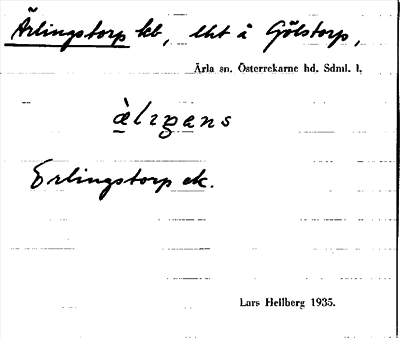 Ärlingstorp kb, lht å Gölstorp,
Ärla sn. Österrekarne hd. Sdml. l.
Erlingstorp ek.
Lars Hellberg 1935.